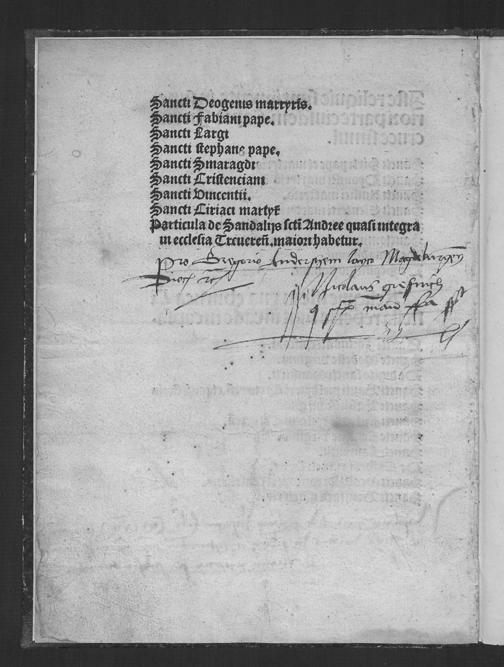 Sancti Deogenis martyris.
Sancti Fabiani pape.
Sancti Largi
Sancti stephani pape.
Sancti Smaragdi
Sancti Cristenciani
Sancti Vincentii.
Sancti Ciriaci martyꝝ
Particula de Sandalijs scti Andree quasi integra
in ecclesia Treueren̄. maiori habetur.
pro Gregorio layco Magdeburgen̄
Nicolaus